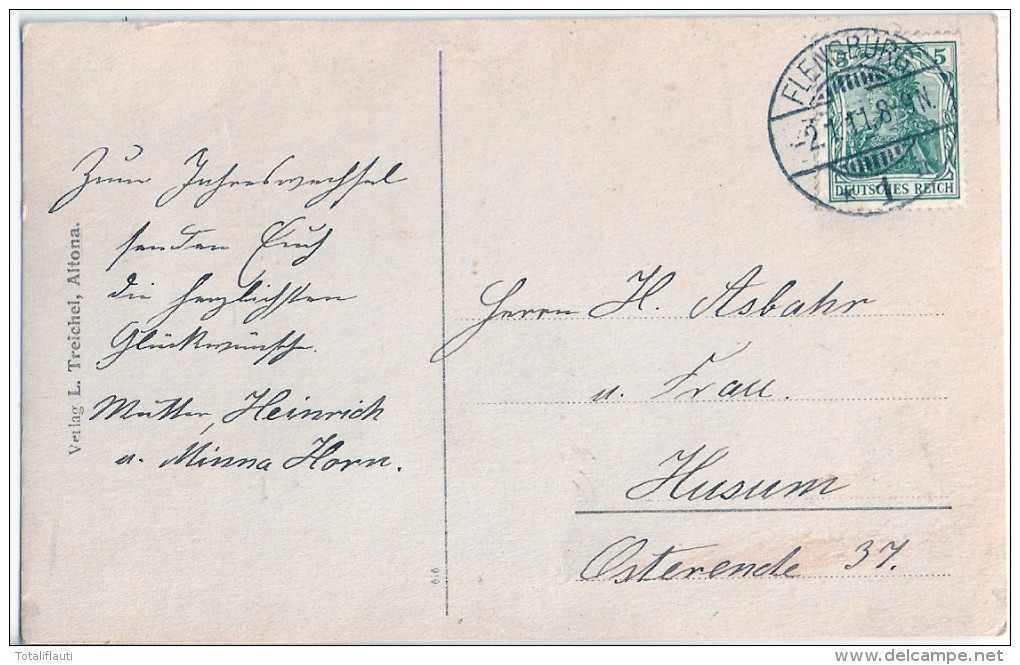 Zum Jahreswechsel
senden Euch
die herzlichsten
Glückwünsche.
Mutter, Heinrich
u. Minna Horn.
Verlag L. Treichel, Altona.
FLENSBURG
2.1.11.8-9N.
* 1
5 5
DEUTSCHES REICH
Herrn H. Asbahr
u. Frau.
Husum
Osterende 37.
Totaliflauti
delcampe.net